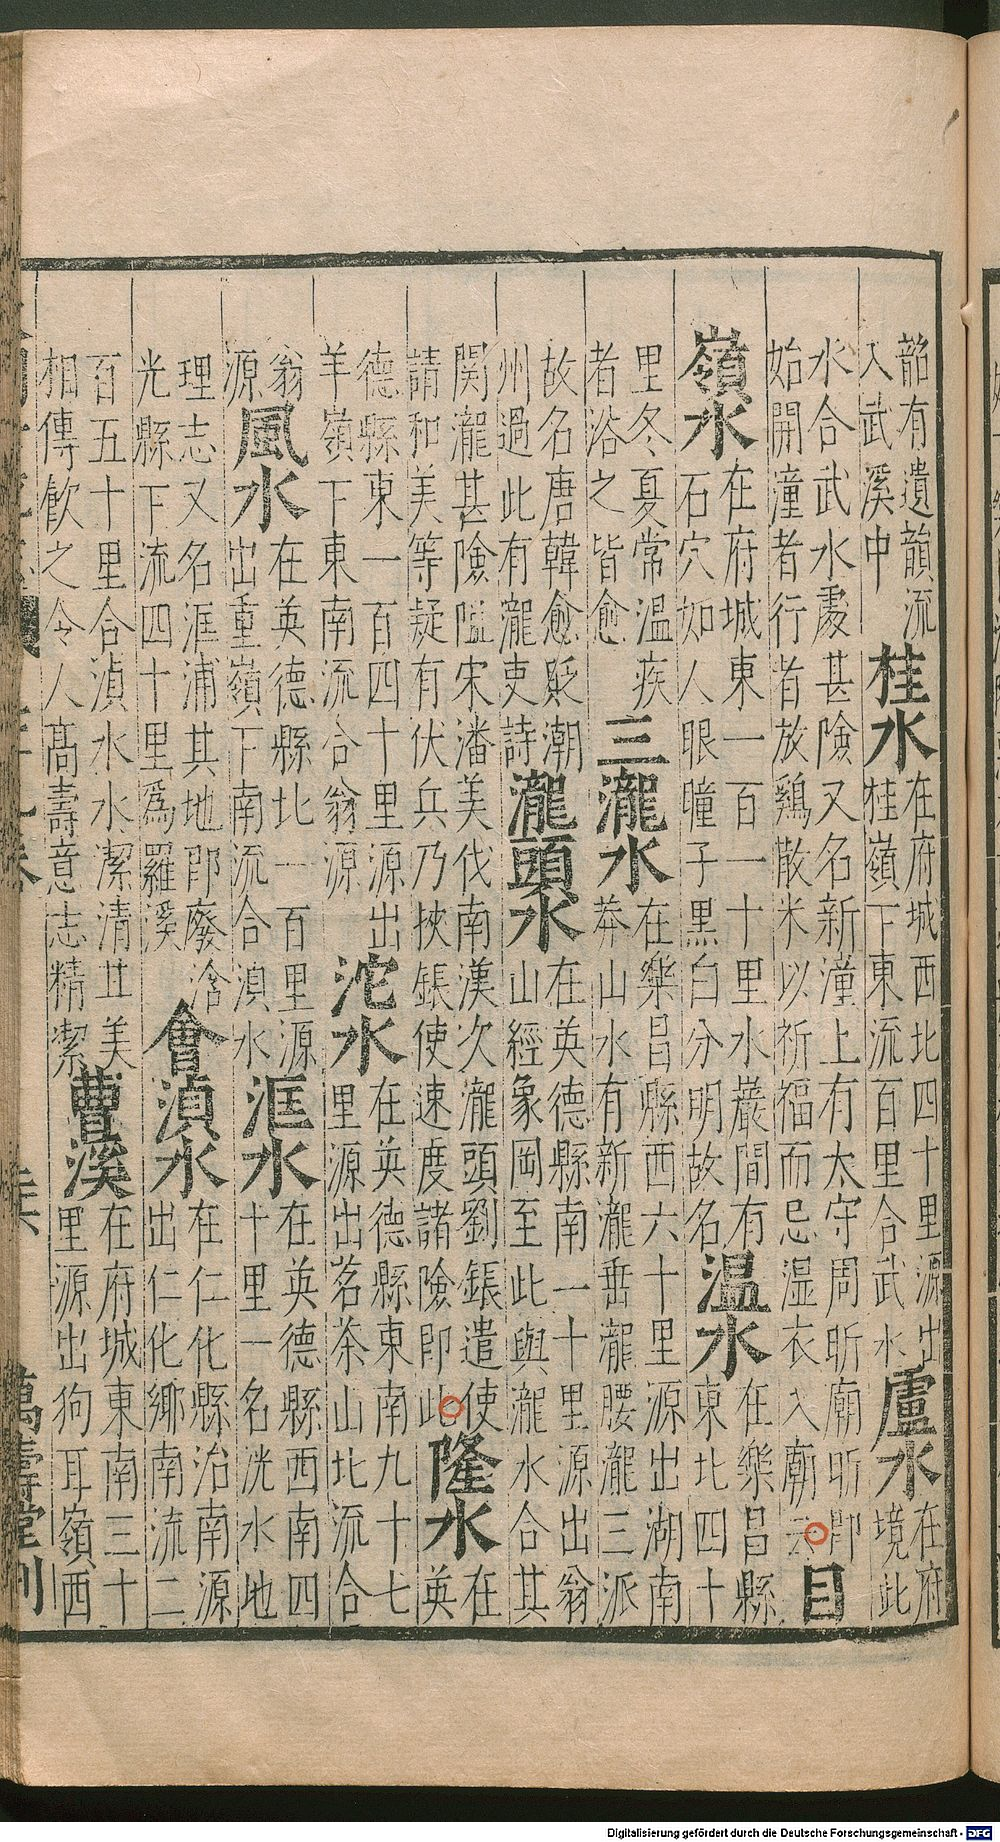 韶有遺韻流
入武溪中
桂水
在府城西北四十里源出
桂嶺下東流百里合武水
盧水
在府
境此
水合武水處甚險又名新潼上有太守周昕廟昕即
始開潼者行者放鷄散米以祈福而忌濕衣入廟云
目
嶺水
在府城東一百一十里水巖間有
石穴如人眼瞳子黑白分明故名
温水
在樂昌縣
東北四十
里冬夏常温疾
者浴之皆愈
三瀧水
在樂昌縣西六十里源出湖南
莽山水有新瀧垂瀧腰瀧三派
故名唐韓愈貶潮
州過此有瀧吏詩
瀧頭水
在英德縣南一十里源出翁
山經象岡至此與瀧水合其
関瀧甚險隘宋潘美伐南漢次瀧頭劉鋹遣使
請和美等疑有伏兵乃挾鋹使速度諸險即此
隆水
在
英
德縣東一百四十里源出
羊嶺下東南流合翁源
沱水
在英德縣東南九十七
里源出茗茶山北流合
翁
源
風水
在英德縣北一百里源
出重嶺下南流合湞水
洭水
在英德縣西南四
十里一名洸水地
理志又名洭浦其地即廢浛
光縣下流四十里爲羅溪
會湞水
在仁化縣治南源
出仁化鄉南流二
百五十里合湞水水潔清甘美
相傳飲之令人髙壽意志精潔
曹溪
在府城東南三十
里源出狗耳嶺西
萬壽堂刊
Digitalisierung gefördert durch die Deutsche Forschungsgemeinschaft - DFG